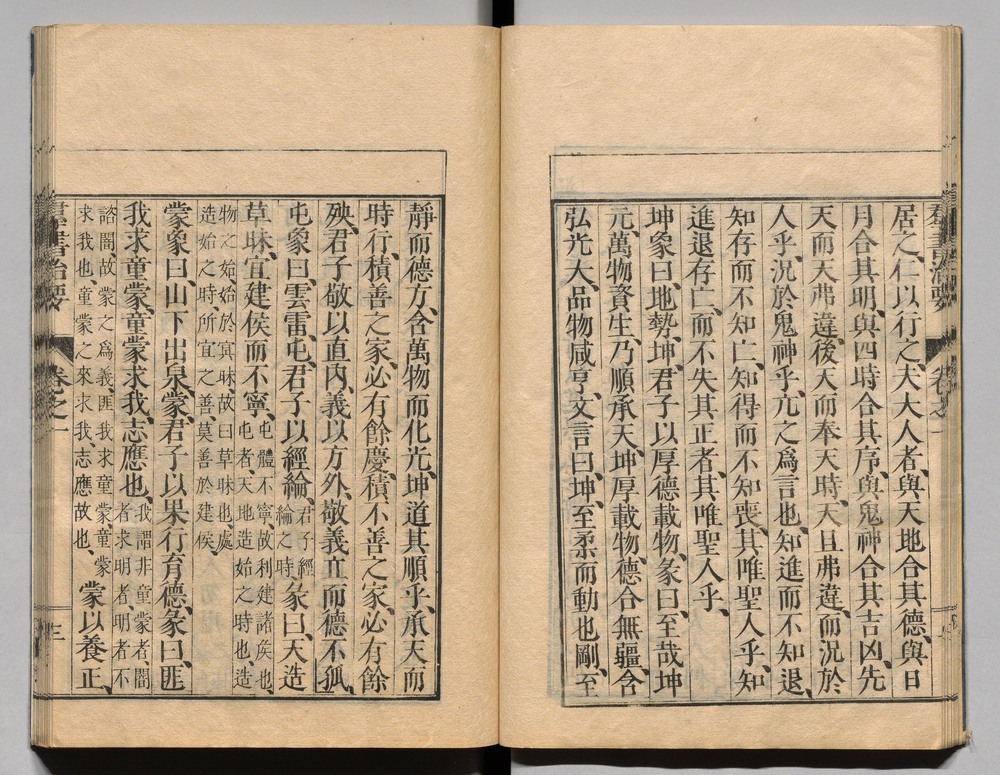 居之、仁以行之、夫大人者、與天地合其德、與日
月合其明、與四時合其序、與鬼神合其吉凶、先
天而天弗違、後天而奉天時、天且弗違、而況於
人乎、況於鬼神乎、亢之爲言也、知進而不知退、
知存而不知亡、知得而不知喪、其唯聖人乎、知
進退存亡、而不失其正者、其唯聖人乎、
坤象曰、地勢、坤、君子以厚德載物、彖曰、至哉坤
元、萬物資生、乃順承天、坤厚載物、德合無疆、含
弘光大、品物咸亨、文言曰、坤、至柔而動也剛、至
靜而德方、含萬物而化光、坤道其順乎、承天而
時行、積善之家、必有餘慶、積不善之家、必有餘
殃、君子敬以直內、義以方外、敬義立而德不孤、
屯象曰、雲雷、屯、君子以經綸、君子經綸之時、彖曰、天造
草昧、宜建侯而不寧、屯體不寧、故利建諸侯也、屯者、天地造始之時也、造
物之始、始於冥昧、故曰草昧也、處造始之時、所宜之善、莫善於建侯、
蒙象曰、山下出泉、蒙、君子以果行育德、彖曰、匪
我求童蒙、童蒙求我、志應也、我謂非童蒙者、闇者求明者、明者不
諮闇、故蒙之爲義、匪我求童蒙、童蒙求我也、童蒙之來求我、志應故也、蒙以養正、
群書治要
卷之一
三